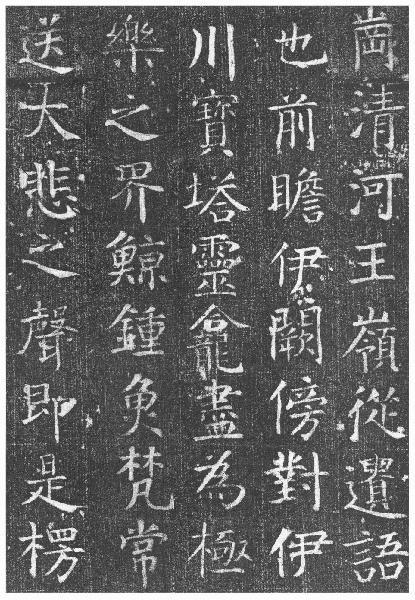 崗清河王嶺從遷語
也前瞻伊闕傍對伊
川寶塔靈龕盡為極
樂之界鯨鍾魚梵常
送大悲之聲即是楞